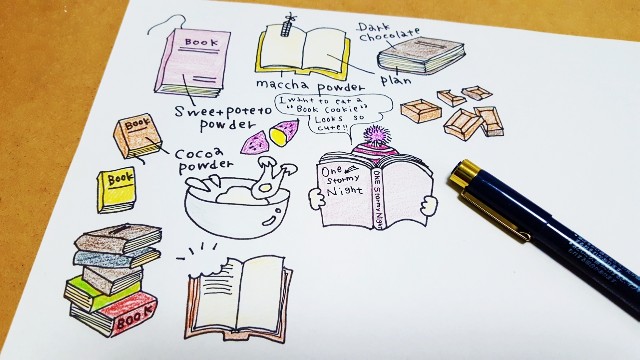 Book
Sweetpoteto
powder
maccha powder
Dark
chocolate
plan
I want to eat a
"Book Cookie"
Looks so
cute!!
Book
Cocoa
powder
Book
One
Stormy
Night
One Stormy Night
BOOK